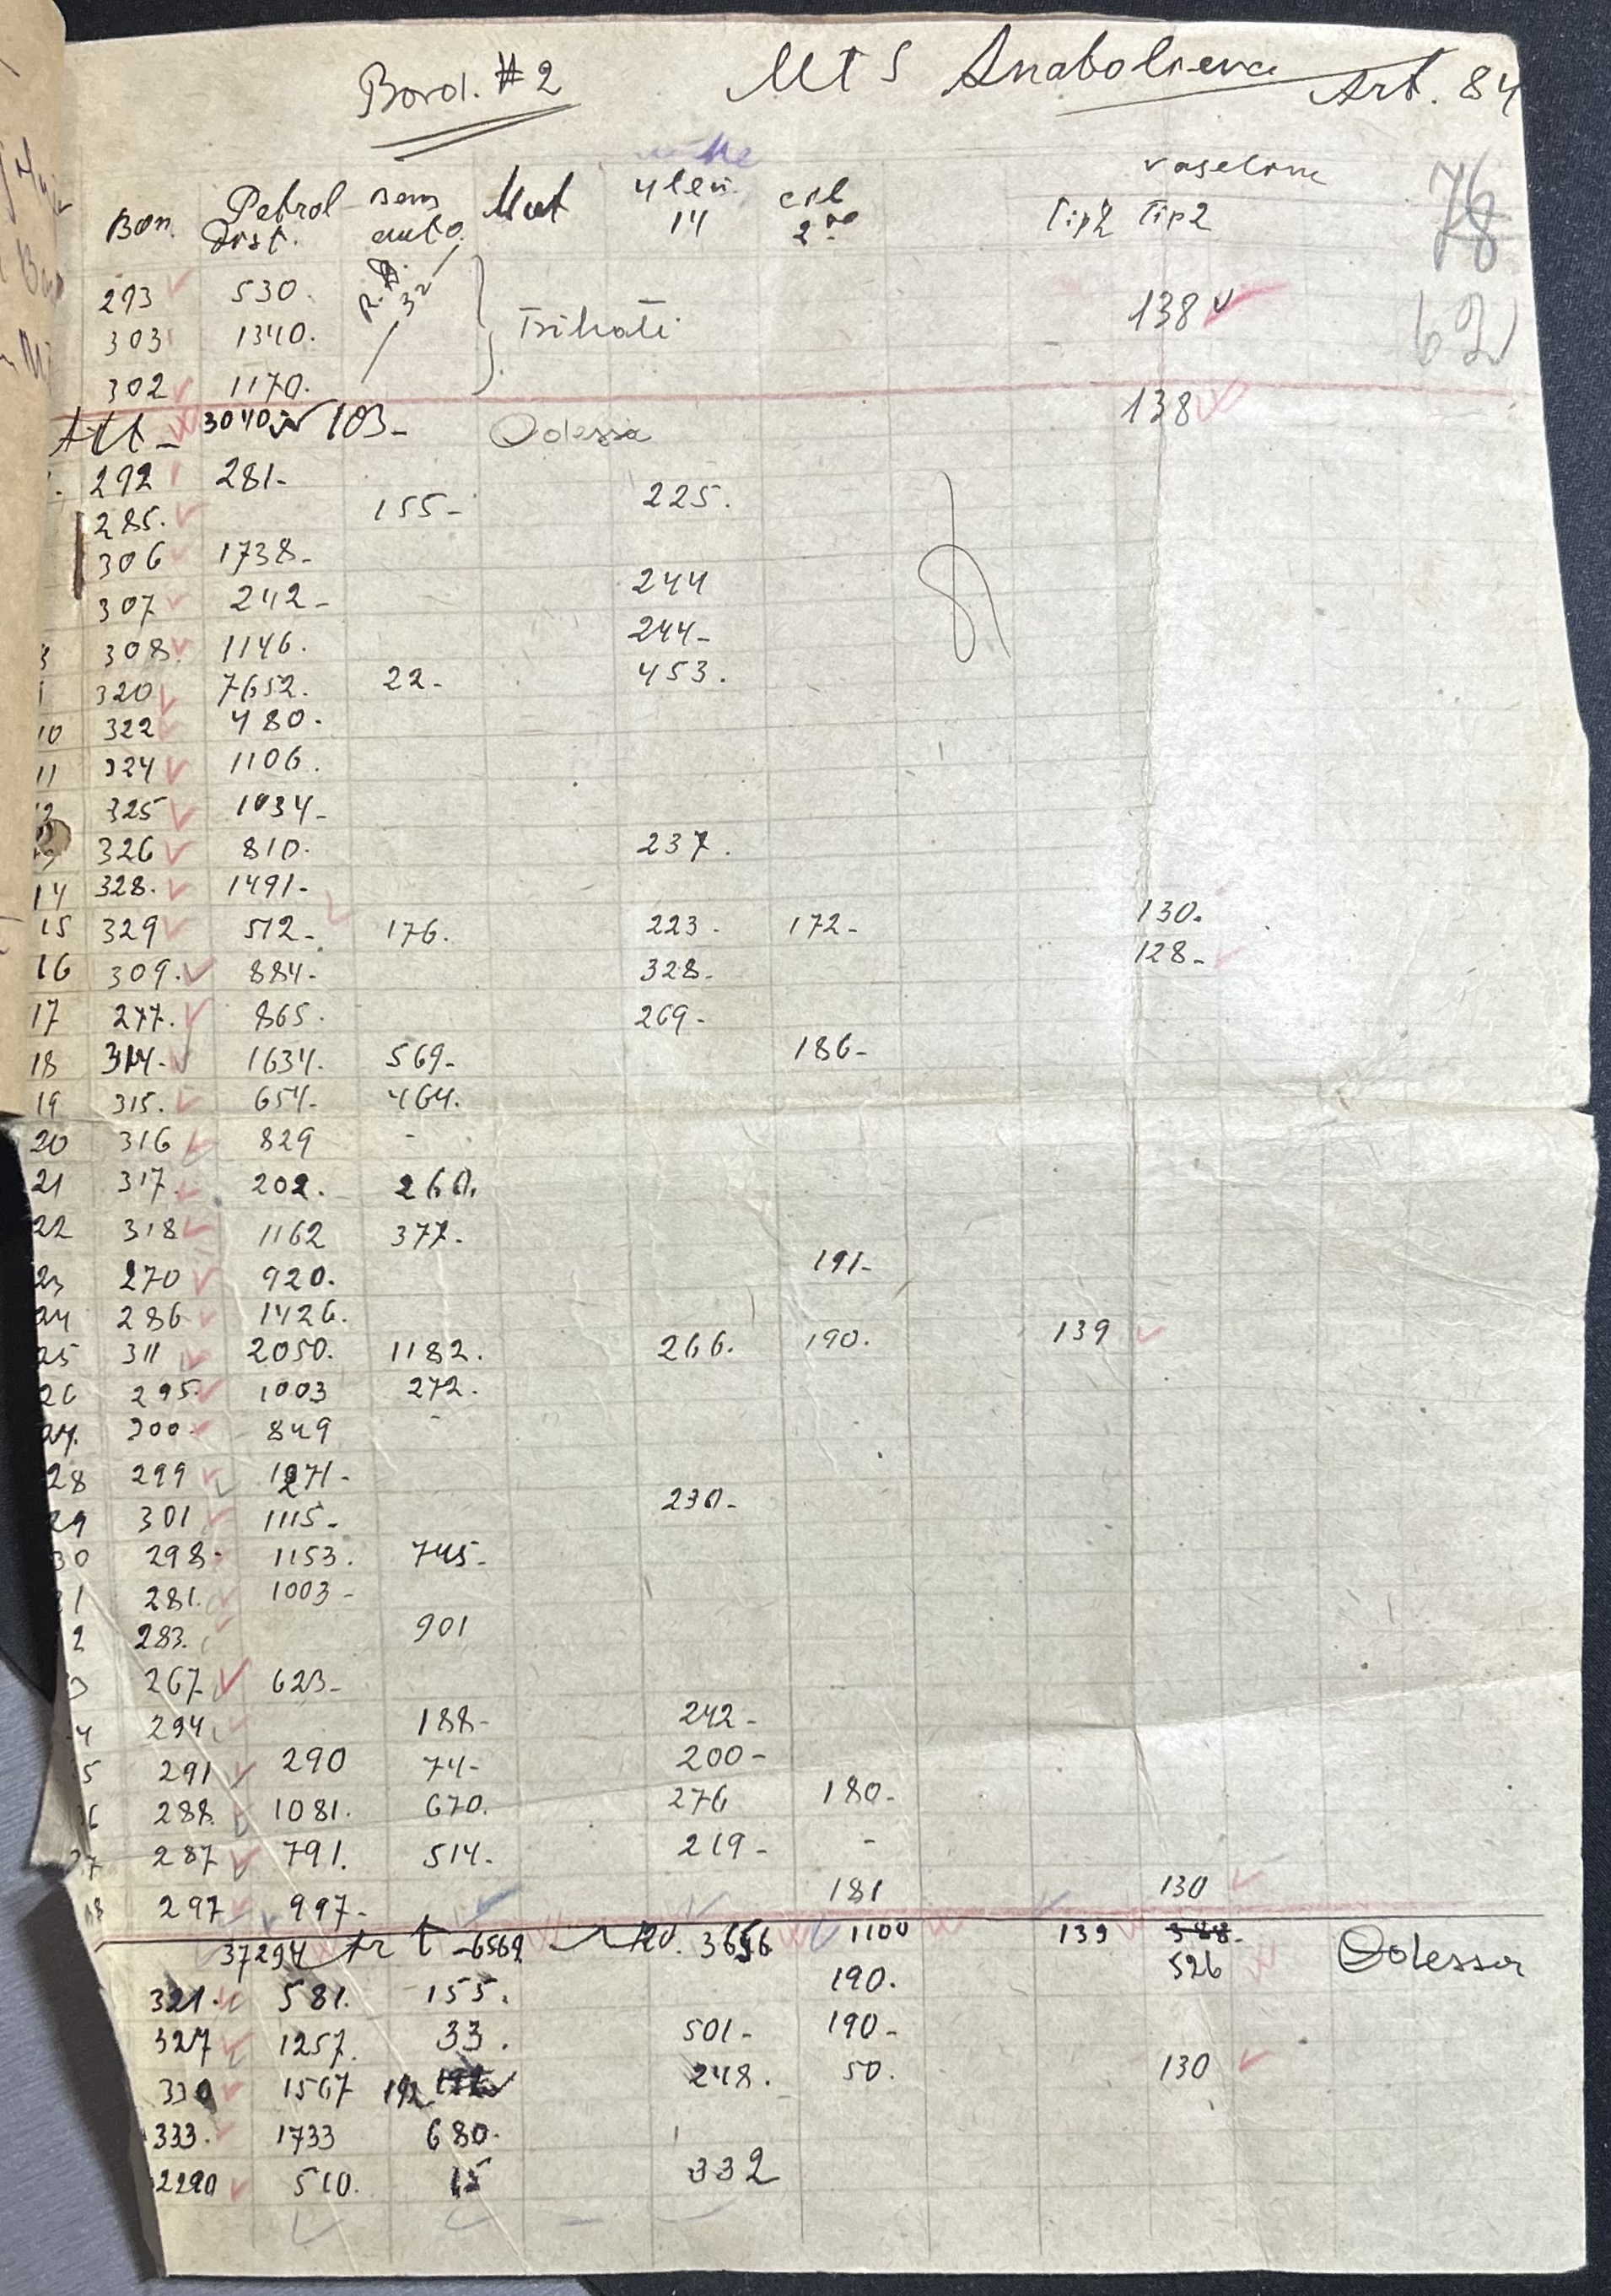 Bord. #2 MTS Anatolievca Art. 84
vaselina 76
Bon Petrol Dist. Benz auto. Mot ulei 14 Tip2 Tip2
293 530. 62
303 1340. Trihati 138
302 1170.
3040 103- Odessa 138
292 281-
285. 155- 225.
306 1738-
307 242- 244
308. 1146. 244-
320 7652. 22- 453.
10 322 480.
11 324 1106.
325 1034-
326 810. 237.
14 328. 1491-
15 329 512- 176. 223- 172- 130.
16 309. 884- 328- 128-
17 277. 865. 269-
18 314. 1634. 569- 186-
19 315. 654- 464.
20 316 829 -
21 317. 202. 260.
22 318 1162 377.
23 270 920. 191-
24 286 1426.
25 311 2050. 1182. 266. 190. 139
26 295. 1003 272.
27. 300 849 -
28 299 1271-
29 301 1115- 230-
30 298- 1153. 745-
1 281. 1003-
2 283. 901
3 267 623-
4 294 188- 242-
5 291 290 74- 200-
6 288. 1081. 670. 276 180.
7 287 791. 514. 219- -
297 997- 181 130
37294 6569 3656 1100 139 388-
526 Odessa
321. 581. 155. 190.
327 1257. 33. 501- 190-
330 1567 192 248. 50. 130
333. 1733 680.
2290 510. 15 332